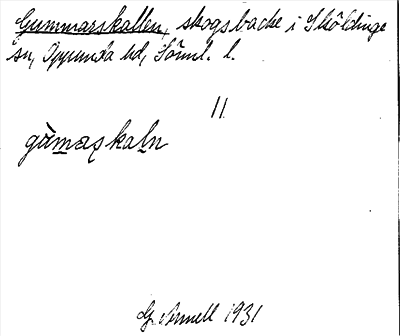 Gummarskallen, skogsbacke i Sköldinge
sn, Oppunda hd, Söml. l.
11
gu̇maʂkaln
G. Annell 1931